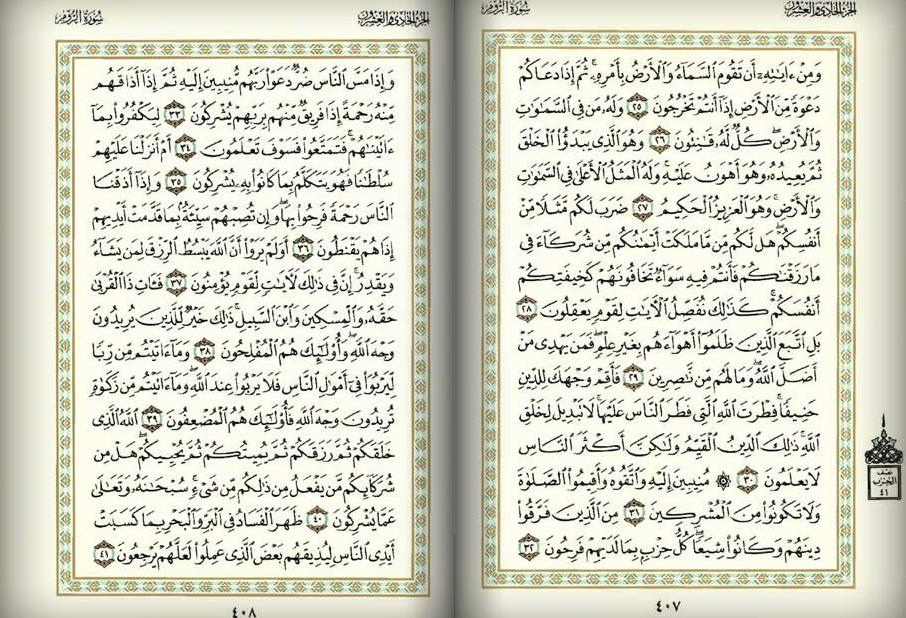 سورة الروم
الجزء الحادي والعشرون
وَمِنْ ءَايَٰتِهِۦٓ أَن تَقُومَ ٱلسَّمَآءُ وَٱلْأَرْضُ بِأَمْرِهِۦ ۚ ثُمَّ إِذَا دَعَاكُمْ
دَعْوَةً مِّنَ ٱلْأَرْضِ إِذَآ أَنتُمْ تَخْرُجُونَ ٢٥ وَلَهُۥ مَن فِى ٱلسَّمَٰوَٰتِ
وَٱلْأَرْضِ ۖ كُلٌّ لَّهُۥ قَٰنِتُونَ ٢٦ وَهُوَ ٱلَّذِى يَبْدَؤُا۟ ٱلْخَلْقَ
ثُمَّ يُعِيدُهُۥ وَهُوَ أَهْوَنُ عَلَيْهِ ۚ وَلَهُ ٱلْمَثَلُ ٱلْأَعْلَىٰ فِى ٱلسَّمَٰوَٰتِ
وَٱلْأَرْضِ ۚ وَهُوَ ٱلْعَزِيزُ ٱلْحَكِيمُ ٢٧ ضَرَبَ لَكُم مَّثَلًا مِّنْ
أَنفُسِكُمْ ۖ هَل لَّكُم مِّن مَّا مَلَكَتْ أَيْمَٰنُكُم مِّن شُرَكَآءَ فِى
مَا رَزَقْنَٰكُمْ فَأَنتُمْ فِيهِ سَوَآءٌ تَخَافُونَهُمْ كَخِيفَتِكُمْ
أَنفُسَكُمْ ۚ كَذَٰلِكَ نُفَصِّلُ ٱلْءَايَٰتِ لِقَوْمٍ يَعْقِلُونَ ٢٨
بَلِ ٱتَّبَعَ ٱلَّذِينَ ظَلَمُوٓا۟ أَهْوَآءَهُم بِغَيْرِ عِلْمٍ ۖ فَمَن يَهْدِى مَنْ
أَضَلَّ ٱللَّهُ ۖ وَمَا لَهُم مِّن نَّٰصِرِينَ ٢٩ فَأَقِمْ وَجْهَكَ لِلدِّينِ
حَنِيفًا ۚ فِطْرَتَ ٱللَّهِ ٱلَّتِى فَطَرَ ٱلنَّاسَ عَلَيْهَا ۚ لَا تَبْدِيلَ لِخَلْقِ
ٱللَّهِ ۚ ذَٰلِكَ ٱلدِّينُ ٱلْقَيِّمُ وَلَٰكِنَّ أَكْثَرَ ٱلنَّاسِ
لَا يَعْلَمُونَ ٣٠ ۞ مُنِيبِينَ إِلَيْهِ وَٱتَّقُوهُ وَأَقِيمُوا۟ ٱلصَّلَوٰةَ
وَلَا تَكُونُوا۟ مِنَ ٱلْمُشْرِكِينَ ٣١ مِنَ ٱلَّذِينَ فَرَّقُوا۟
دِينَهُمْ وَكَانُوا۟ شِيَعًا ۖ كُلُّ حِزْبٍۭ بِمَا لَدَيْهِمْ فَرِحُونَ ٣٢
نصف
الحزب
٤١
٤٠٧
سورة الروم
الجزء الحادي والعشرون
وَإِذَا مَسَّ ٱلنَّاسَ ضُرٌّ دَعَوْا۟ رَبَّهُم مُّنِيبِينَ إِلَيْهِ ثُمَّ إِذَآ أَذَاقَهُم
مِّنْهُ رَحْمَةً إِذَا فَرِيقٌ مِّنْهُم بِرَبِّهِمْ يُشْرِكُونَ ٣٣ لِيَكْفُرُوا۟ بِمَآ
ءَاتَيْنَٰهُمْ ۚ فَتَمَتَّعُوا۟ فَسَوْفَ تَعْلَمُونَ ٣٤ أَمْ أَنزَلْنَا عَلَيْهِمْ
سُلْطَٰنًا فَهُوَ يَتَكَلَّمُ بِمَا كَانُوا۟ بِهِۦ يُشْرِكُونَ ٣٥ وَإِذَآ أَذَقْنَا
ٱلنَّاسَ رَحْمَةً فَرِحُوا۟ بِهَا ۖ وَإِن تُصِبْهُمْ سَيِّئَةٌۢ بِمَا قَدَّمَتْ أَيْدِيهِمْ
إِذَا هُمْ يَقْنَطُونَ ٣٦ أَوَلَمْ يَرَوْا۟ أَنَّ ٱللَّهَ يَبْسُطُ ٱلرِّزْقَ لِمَن يَشَآءُ
وَيَقْدِرُ ۚ إِنَّ فِى ذَٰلِكَ لَءَايَٰتٍ لِّقَوْمٍ يُؤْمِنُونَ ٣٧ فَـَٔاتِ ذَا ٱلْقُرْبَىٰ
حَقَّهُۥ وَٱلْمِسْكِينَ وَٱبْنَ ٱلسَّبِيلِ ۚ ذَٰلِكَ خَيْرٌ لِّلَّذِينَ يُرِيدُونَ
وَجْهَ ٱللَّهِ ۖ وَأُو۟لَٰٓئِكَ هُمُ ٱلْمُفْلِحُونَ ٣٨ وَمَآ ءَاتَيْتُم مِّن رِّبًا
لِّيَرْبُوَا۟ فِىٓ أَمْوَٰلِ ٱلنَّاسِ فَلَا يَرْبُوا۟ عِندَ ٱللَّهِ ۖ وَمَآ ءَاتَيْتُم مِّن زَكَوٰةٍ
تُرِيدُونَ وَجْهَ ٱللَّهِ فَأُو۟لَٰٓئِكَ هُمُ ٱلْمُضْعِفُونَ ٣٩ ٱللَّهُ ٱلَّذِى
خَلَقَكُمْ ثُمَّ رَزَقَكُمْ ثُمَّ يُمِيتُكُمْ ثُمَّ يُحْيِيكُمْ ۖ هَلْ مِن
شُرَكَآئِكُم مَّن يَفْعَلُ مِن ذَٰلِكُم مِّن شَىْءٍ ۚ سُبْحَٰنَهُۥ وَتَعَٰلَىٰ
عَمَّا يُشْرِكُونَ ٤٠ ظَهَرَ ٱلْفَسَادُ فِى ٱلْبَرِّ وَٱلْبَحْرِ بِمَا كَسَبَتْ
أَيْدِى ٱلنَّاسِ لِيُذِيقَهُم بَعْضَ ٱلَّذِى عَمِلُوا۟ لَعَلَّهُمْ يَرْجِعُونَ ٤١
٤٠٨